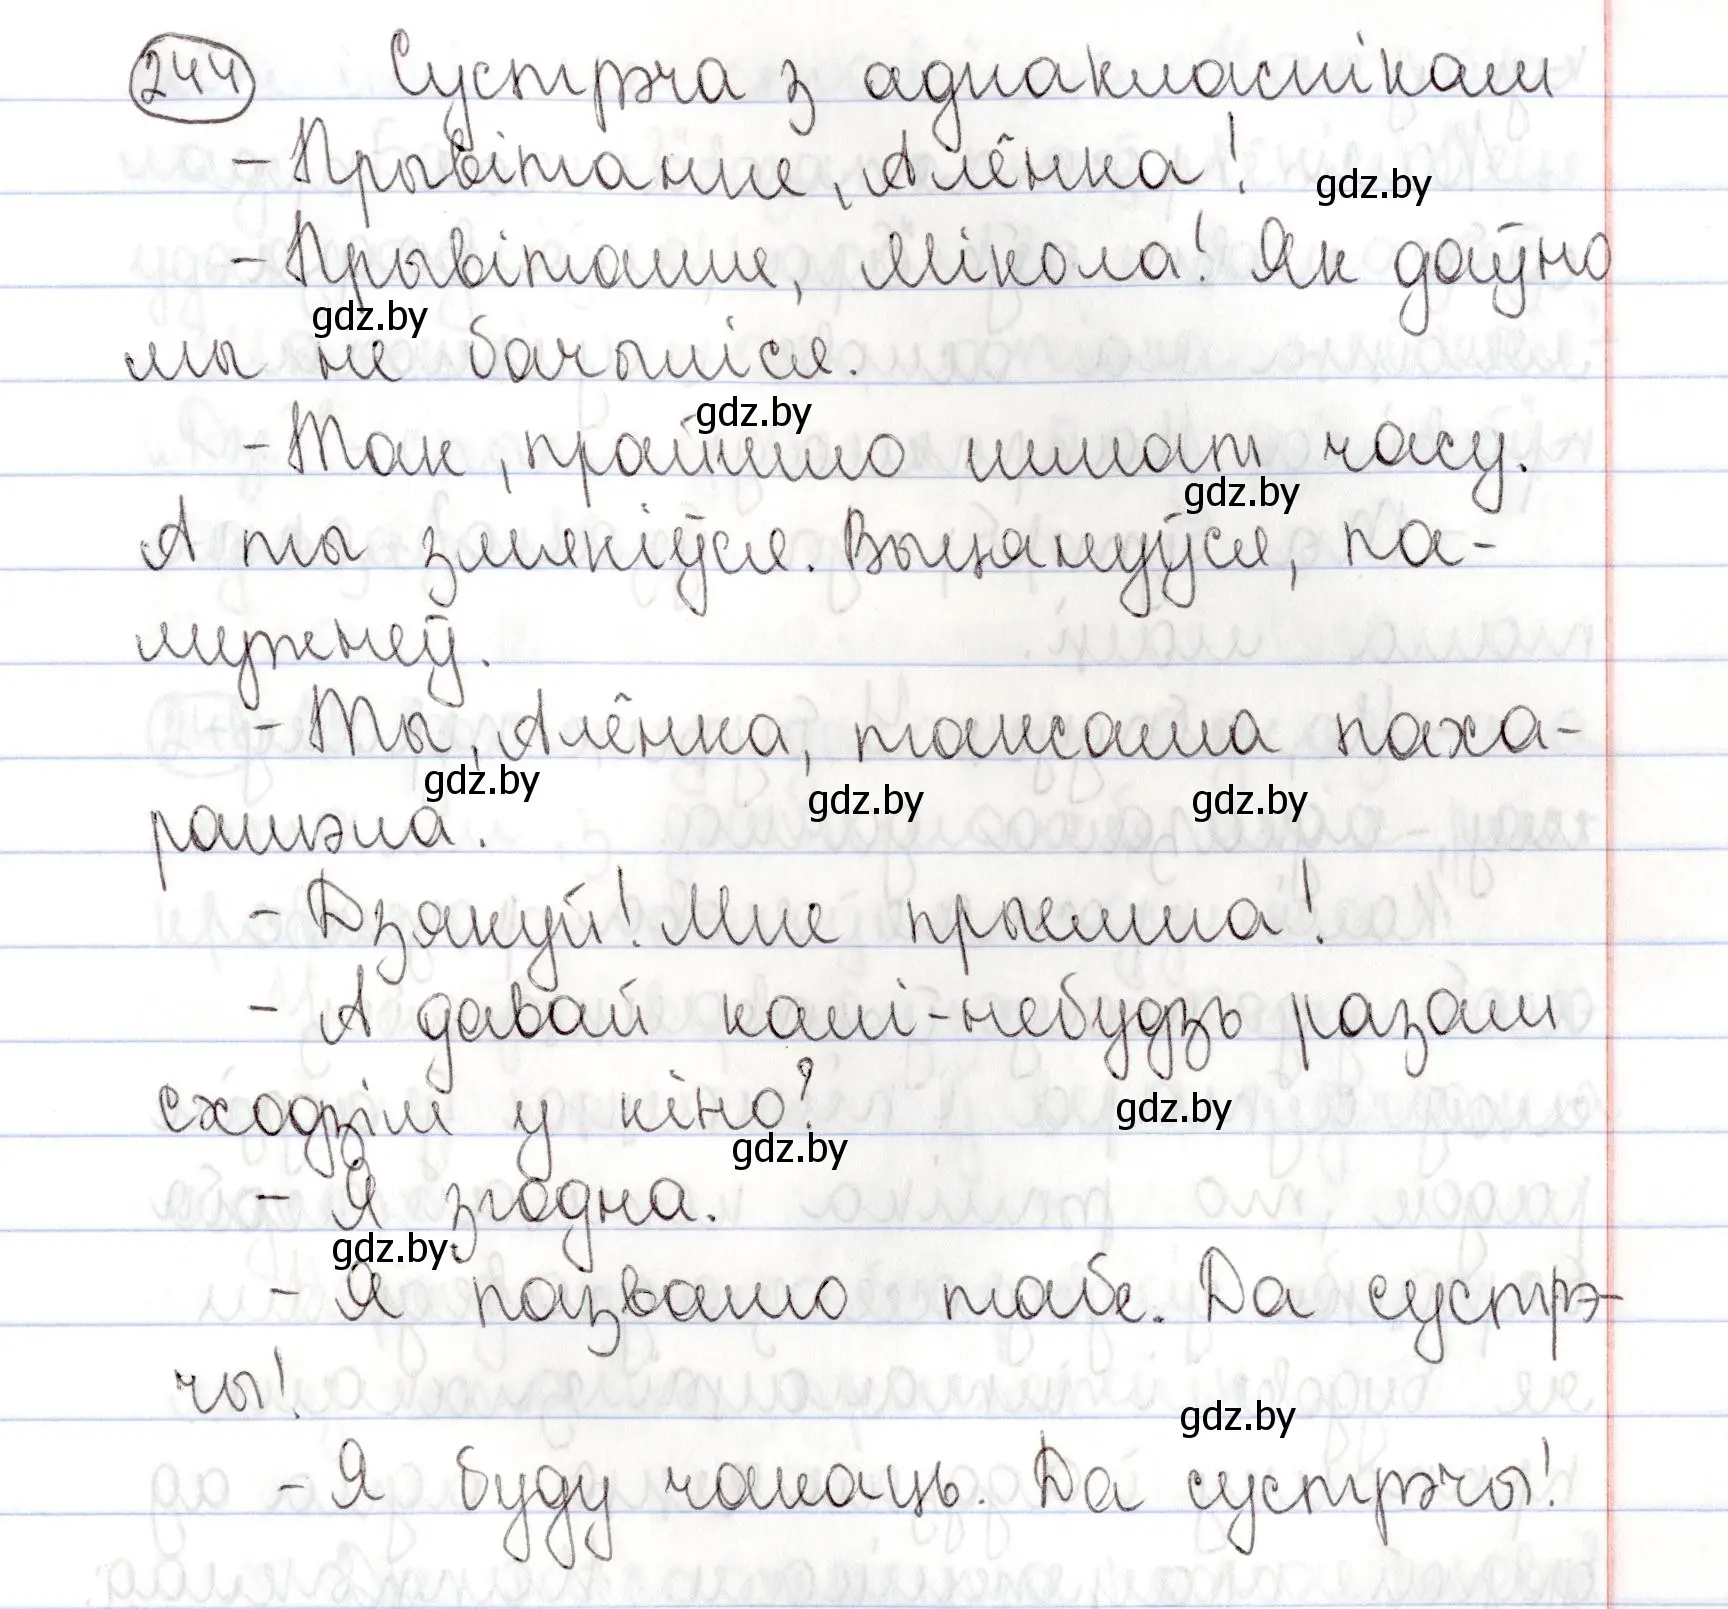 244 Сустрэча з аднакласнікам
- Прывітанне, Алёнка!
gdz.by
- Прывітанне, Мікола! Як даўно
gdz.by
мы не бачыліся.
gdz.by
- Так, прайшло шмат часу.
gdz.by
А ты змяніўся. Выцягнуўся, па-
мужнеў.
- Ты, Алёнка, таксама паха-
gdz.by gdz.by gdz.by
рашэла.
- Дзякуй! Мне прыемна!
- А давай калі-небудзь разам
сходзім у кіно?
gdz.by
gdz.by
- Я згодна.
gdz.by
- Я пазваню табе. Да сустрэ-
чы!
gdz.by
- Я буду чакаць. Да сустрэчы!